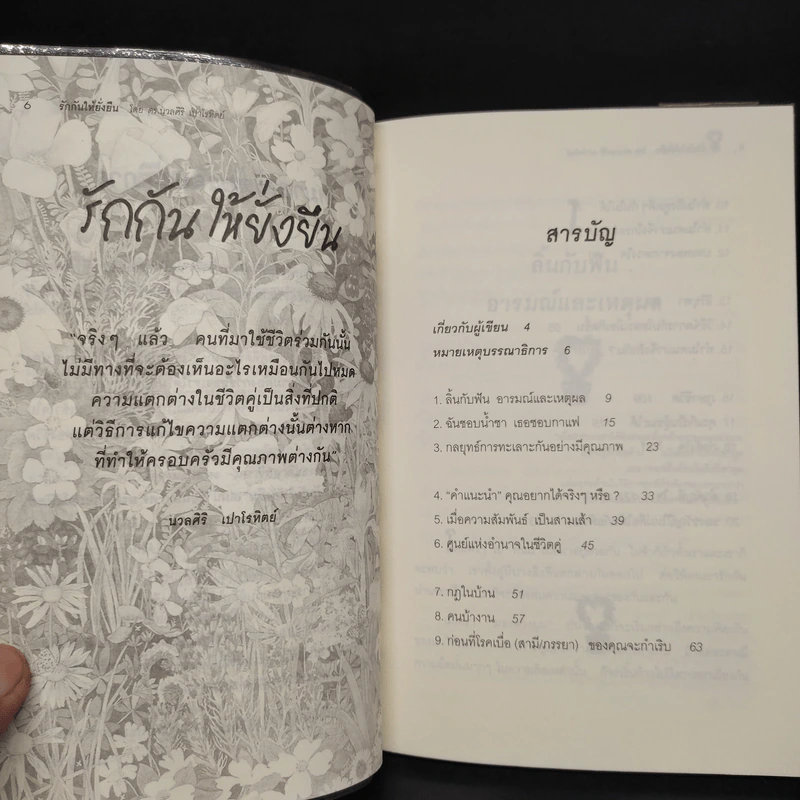 6 รักกันให้ยั่งยืน โดย ดร.นวลศิริ เปาโรหิตย์
รักกันให้ยั่งยืน
"จริงๆ แล้ว คนที่มาใช้ชีวิตร่วมกันนั้น
ไม่มีทางที่จะต้องเห็นอะไรเหมือนกันไปหมด
ความแตกต่างในชีวิตคู่เป็นสิ่งที่ปกติ
แต่วิธีการแก้ไขความแตกต่างนั้นต่างหาก
ที่ทำให้ครอบครัวมีคุณภาพต่างกัน"
นวลศิริ เปาโรหิตย์
สารบัญ
เกี่ยวกับผู้เขียน 4
หมายเหตุบรรณาธิการ 6
1. ลิ้นกับฟัน อารมณ์และเหตุผล 9
2. ฉันชอบน้ำชา เธอชอบกาแฟ 15
3. กลยุทธ์การทะเลาะกันอย่างมีคุณภาพ 23
4. "คำแนะนำ" คุณอยากได้จริงๆ หรือ ? 33
5. เมื่อความสัมพันธ์ เป็นสามเส้า 39
6. ศูนย์แห่งอำนาจในชีวิตคู่ 45
7. กฎในบ้าน 51
8. คนบ้างาน 57
9. ก่อนที่โรคเบื่อ (สามี/ภรรยา) ของคุณจะกำเริบ 63